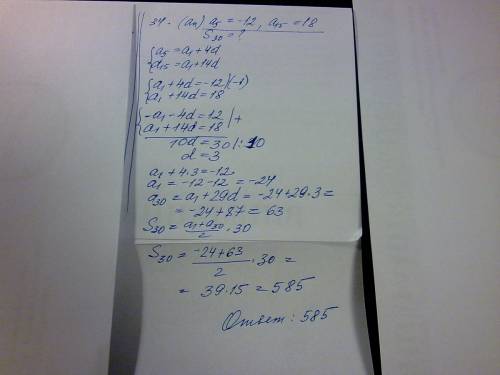 34. (aₙ) a₅ = -12, a₁₅ = 18
S₃₀ = ?
{a₅ = a₁ + 4d
a₁₅ = a₁ + 14d
{a₁ + 4d = -12 |(-1)
a₁ + 14d = 18
{-a₁ - 4d = 12 | +
a₁ + 14d = 18
10d = 30 |: 10
d = 3
a₁ + 4·3 = -12
a₁ = -12 - 12 = -24
a₃₀ = a₁ + 29d = -24 + 29·3 =
= -24 + 87 = 63
S₃₀ = (a₁ + a₃₀)/2 · 30
S₃₀ = (-24 + 63)/2 · 30 =
= 39·15 = 585
Ответ: 585